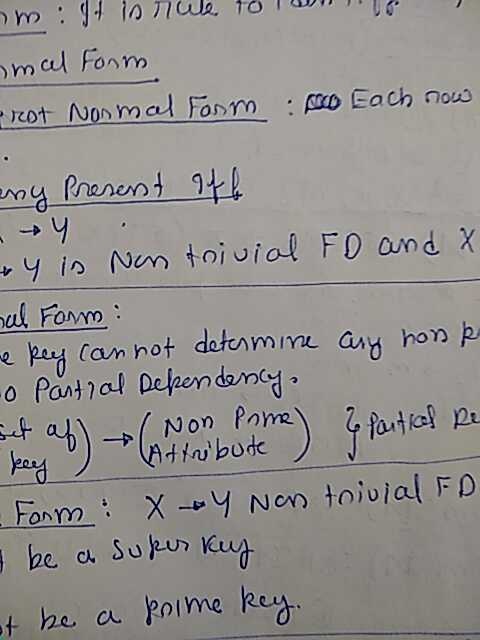 : It is rule to
Form
Normal Form : Each row
.
Present Iff
→ Y
Y is Non trivial FD and X
Form :
key cannot determine any non
Partial Dependency.
set of) → (Non Prime Attribute) } Partial
key
Form : X → Y Non trivial FD
be a super key
be a prime key.